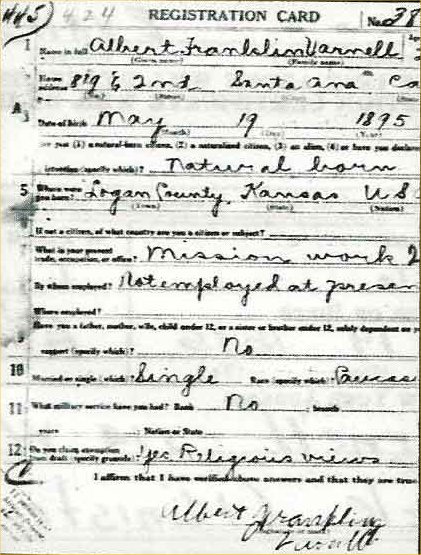 445) 424 REGISTRATION CARD No. 38
1 Name in full Albert Franklin Varnell
(Given name) (Family name)
Home address 819 E 2nd Santa Ana Ca
(No.) (Street) (State)
3 Date of birth May 19 1895
(Month) (Day) (Year)
are you (1) a natural-born citizen, (2) a naturalized citizen, (3) an alien, (4) or have you declared
intention (specify which)? Natural born
5 Where were you born? Logan County, Kansas U S
(Town) (State) (Nation)
If not a citizen, of what country are you a citizen or subject?
What is your present trade, occupation, or office? Mission work
By whom employed? Not employed at presen
Where employed?
Have you a father, mother, wife, child under 12, or a sister or brother under 12, solely dependent on
support (specify which)? No
10 Married or single (which)? Single Race (specify which)? Caucas
11 What military service have you had? Rank No ; branch
years ; Nation or State
12 Do you claim exemption from draft (specify grounds)? Yes Religious views
I affirm that I have verified above answers and that they are true
Albert Franklin
(Signature or mark)
Varnell